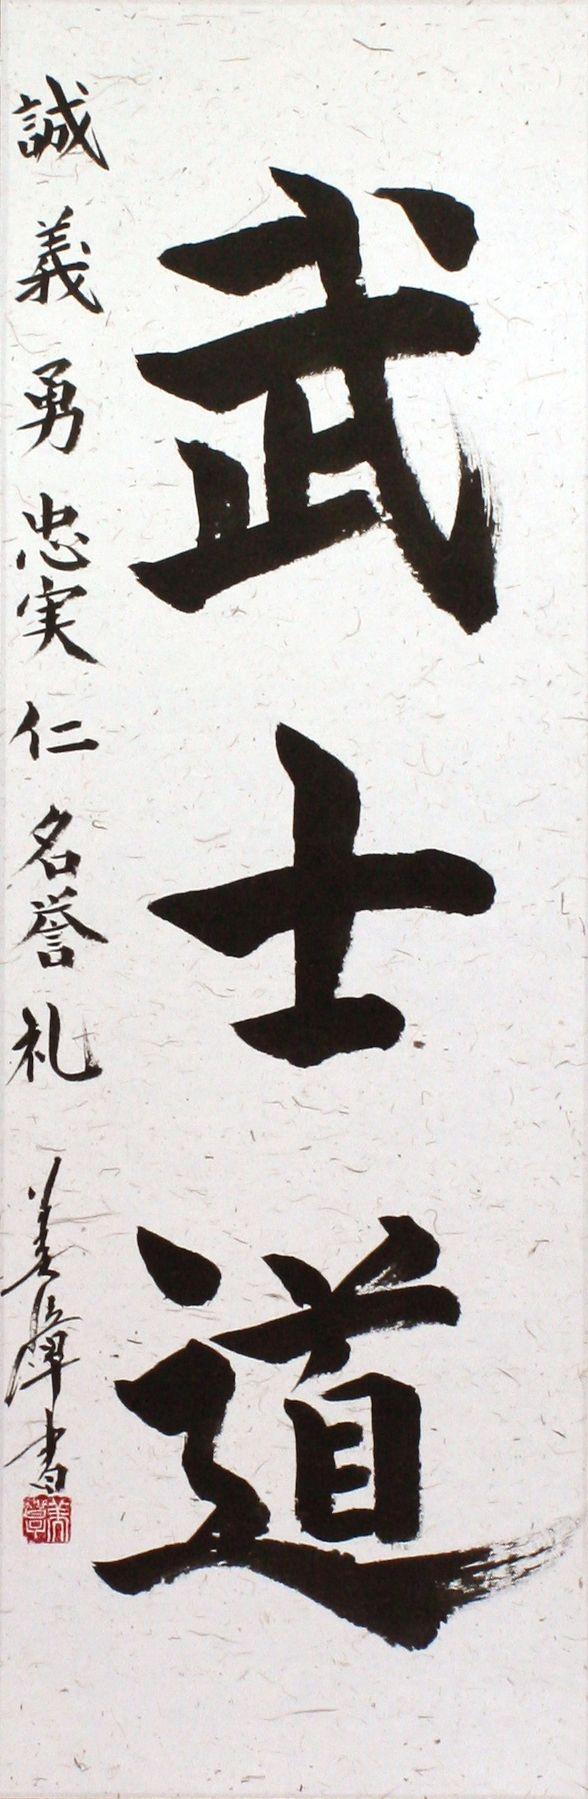 武士道
誠 義 勇 忠実 仁 名誉 礼
書